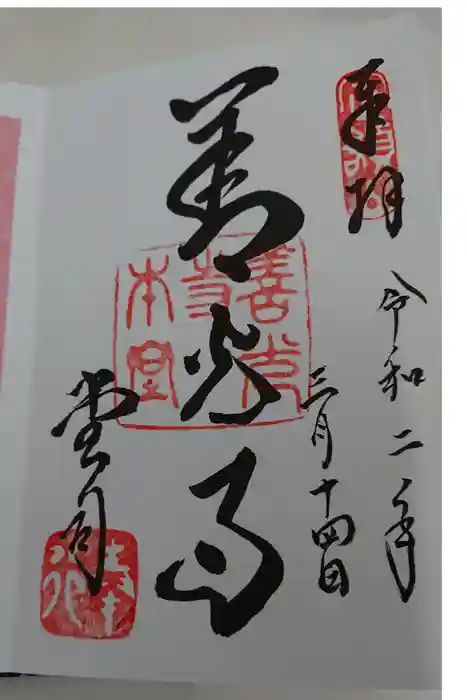 奉拝
令和二年
三月十四日
善光寺
善光寺本堂